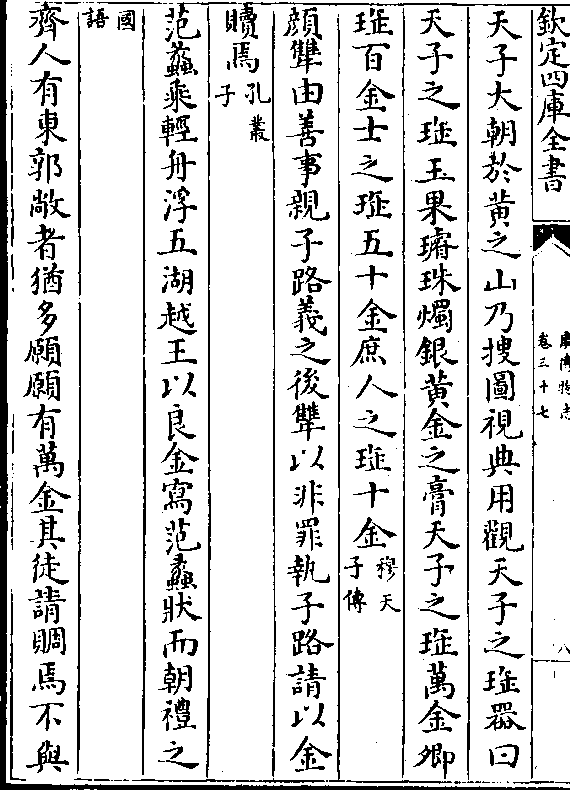 欽定四庫全書
卷三十七
八
天子大朝於黄之山乃披圖視典用觀天子之珤器曰
天子之珤玉果璿珠燭銀黄金之膏天子之珤萬金卿
珤百金士之珤五十金庶人之珤十金穆天子傳
顔讐由善事親子路義之後讐以非罪執子路請以金
贖焉孔叢子
范蠡乘輕舟浮五湖越王以良金寫范蠡狀而朝禮之
國語
齊人有東郭敞者猶多願願有萬金其徒請賙焉不與